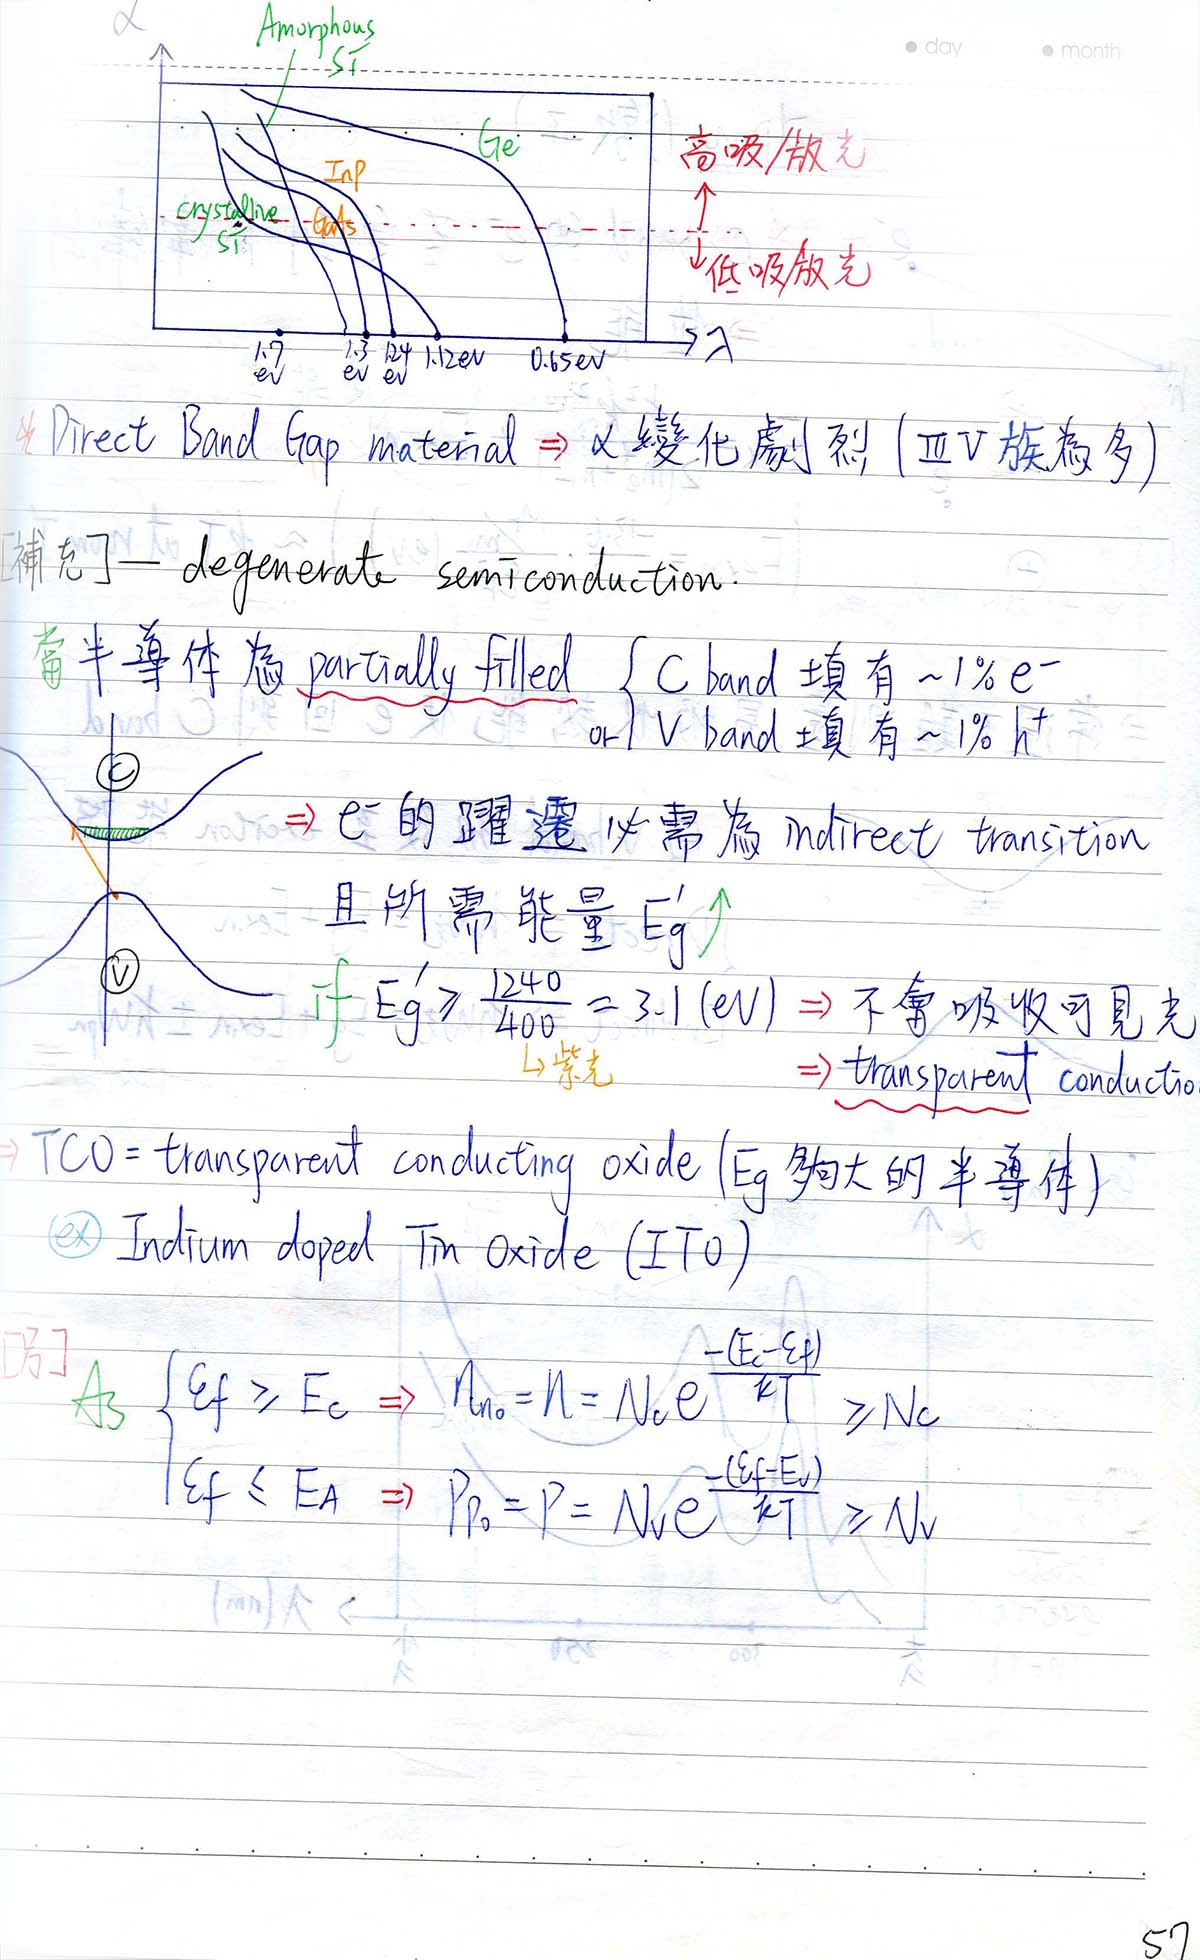 day month
α
Amorphous
Si
Ge
高吸/放光
InP
crystallive
Si
GaAs
低吸/放光
1.7
eV
1.3
eV
1.24
eV
1.12eV
0.65eV
λ
* Direct Band Gap material ⇒ α 變化劇烈 (ⅢⅤ族為多)
[補充] — degenerate semiconduction.
當半導体為 partially filled { C band 填有 ~1% e⁻
or V band 填有 ~1% h⁺
C
⇒ e⁻ 的躍遷必需為 indirect transition
且所需能量 Eg' ↑
V
if Eg' ≥ 1240/400 = 3.1 (eV) ⇒ 不會吸收可見光
↳ 紫光
⇒ transparent conductio
⇒ TCO = transparent conducting oxide (Eg 夠大的半導体)
ex Indium doped Tin Oxide (ITO)
As { Ɛf ≥ Ec ⇒ nno = n = Nc e^(-(Ec-Ɛf)/kT) ≥ Nc
Ɛf ≤ EA ⇒ Ppo = P = Nv e^(-(Ɛf-Ev)/kT) ≥ Nv
57